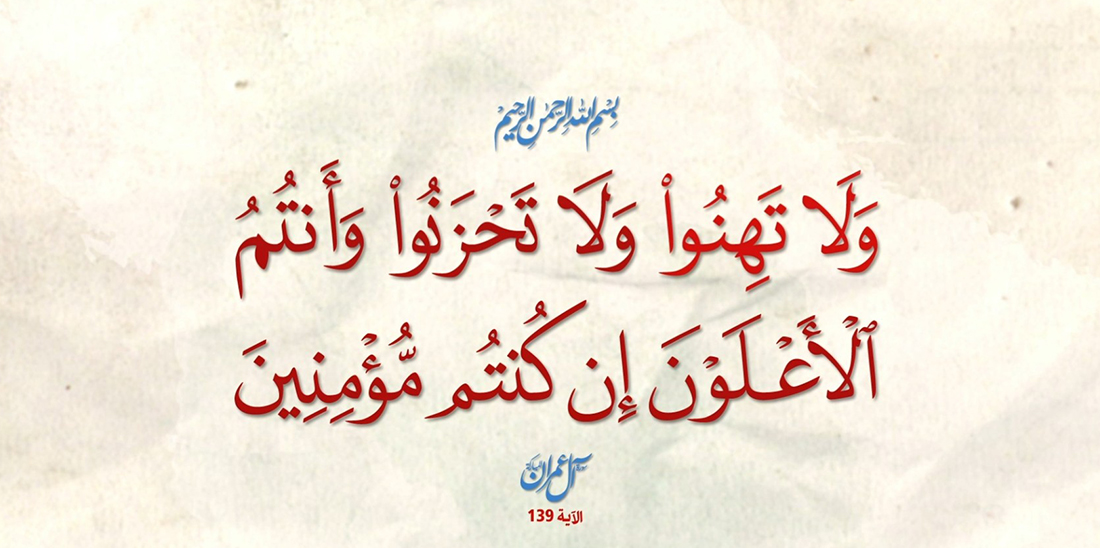 بِسْمِ اللهِ الرَّحْمٰنِ الرَّحِيمِ
وَلَا تَهِنُوا۟ وَلَا تَحْزَنُوا۟ وَأَنتُمُ
ٱلْأَعْلَوْنَ إِن كُنتُم مُّؤْمِنِينَ
آل عمران
الآية 139